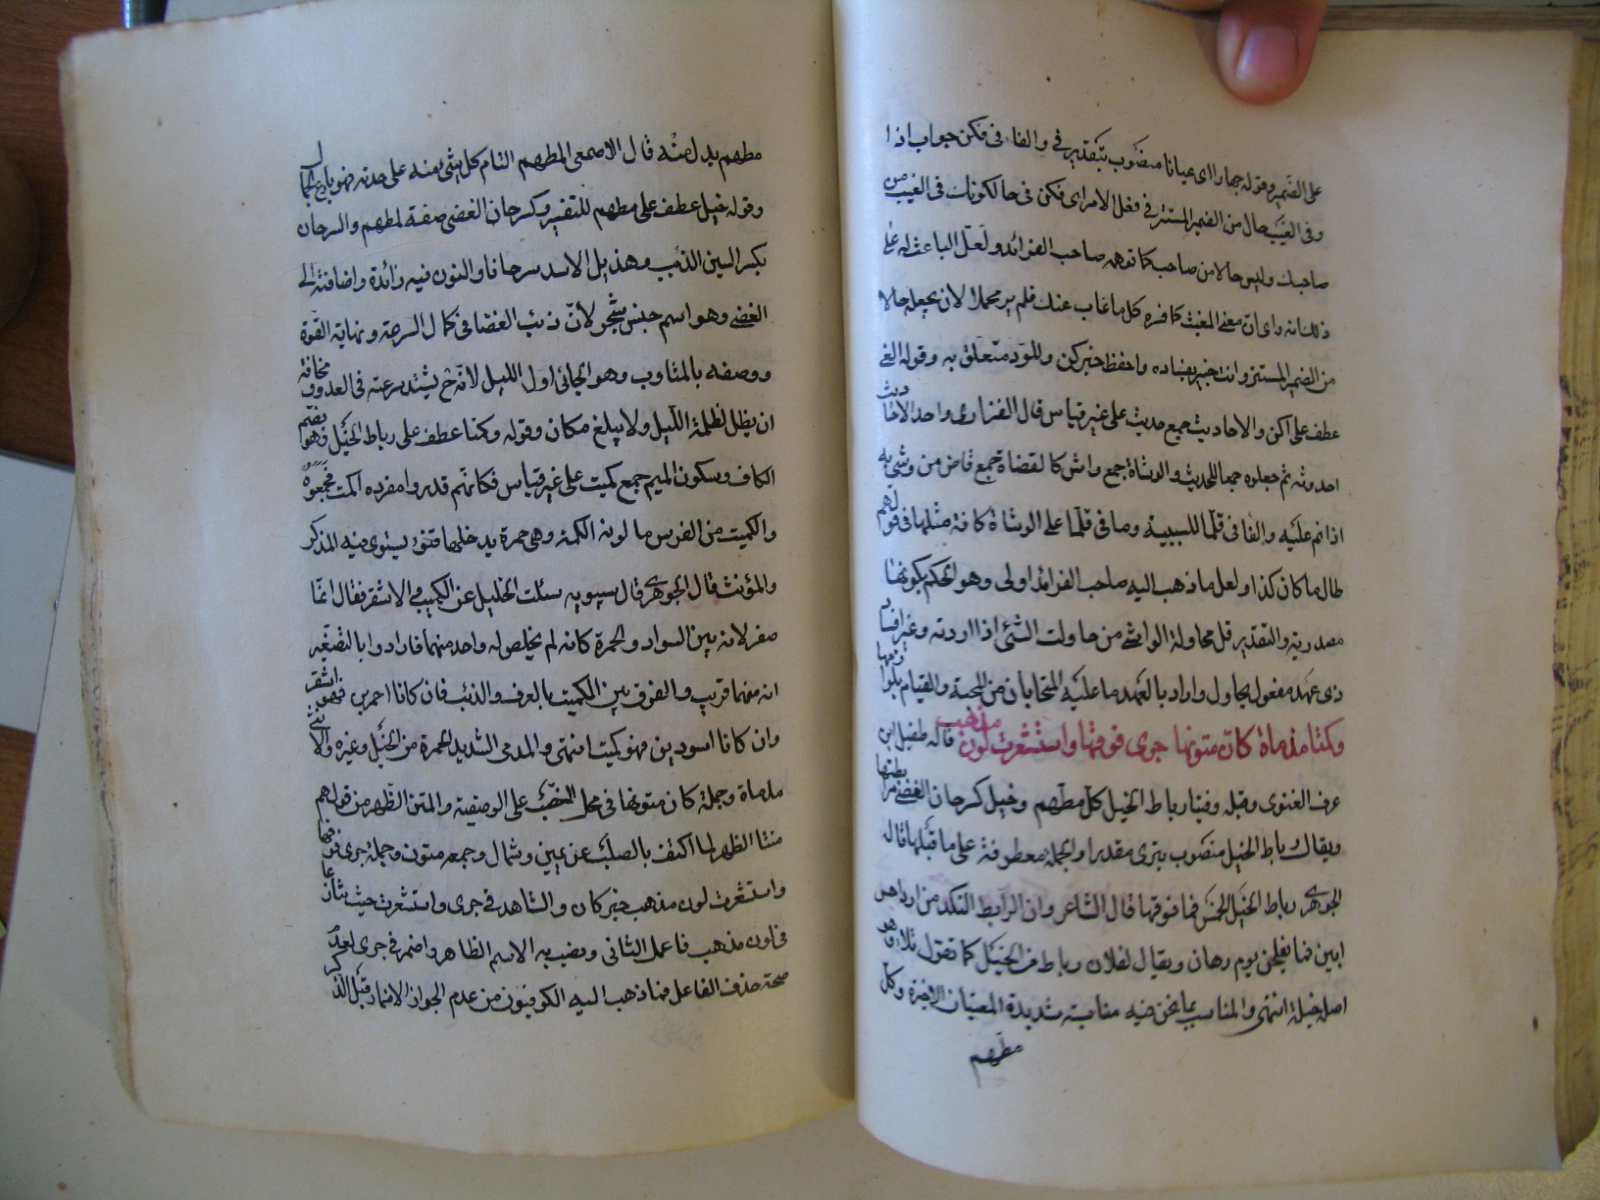 على الضمير وقوله جهارا اى عيانا منصوب بتقدير فى والفاء فى فكن جواب اذا
وفى الغيب حال من الضمير المستتر فى فعل الامر اى فكن فى حالكونك فى الغيب من
صاحبك وليس حالا من صاحب كما توهمه صاحب الفرائد ولعل الباعث له على
ذلك انه راى ان معنى المغيب كما فسره كل ما غاب عنك فلم ير محملا لان يجعله حالا
من الضمير المستتر وانت خبير بفساده واحفظ خبر كن وللود متعلق به وقوله الغ
عطف على اكن والاحاديث جمع حديث على غير قياس قال الفراء واحد الاحاديث
احدوثة ثم جعلوه جمعا للحديث والوشاة جمع واش كالقضاة جمع قاض من وشى به
اذا نم عليه والفا فى قلما للسببية وما فى قلما على الوشاة كافة مثلها فى قولهم
طال ما كان كذا ولعل ما ذهب اليه صاحب الفرائد اولى وهو الحكم بكونها
مصدرية والتقدير قل محاولة الواشى من حاولت الشئ اذا اردته وغير افساد
ذى عهد مفعول يحاول واراد بالعهد ما عليه المتحابان من المحبة والقيام بلوازمها
وكمتا مدماة كان متونها جرى فوقها واستشعرت لون مذهب قاله طفيل ابن
عوف الغنوى وقبله وفينا رباط الخيل كل مطهم وخيل كسرحان الغضى
ويقال رباط الخيل منصوب بترى مقدرا والجملة معطوفة على ما قبلها قاله
الجوهرى رباط الخيل الخمس فما فوقها قال الشاعر وان الرباط النكد من ال داحس
ابين فما يفلحن يوم رهان ويقال لفلان رباط من الخيل كما تقول تلاد وهو
اصل خيله انتهى والمناسب بما نحن فيه الاخيرة وكل
مطهم
مطهم بدل منه قال الاصمعى المطهم التام كل شئ منه على حدته فهو بارع الجمال
وقوله خيل عطف على مطهم للتفسير وكسرحان الغضى صفة لمطهم والسرحان
بكسر السين الذئب وهذيل الاسد سرحانا والنون فيه زائدة واضافته الى
الغضى وهو اسم جنس شجر لان ذئب الغضا فى كمال السرعة ونهاية القوة
ووصفه بالمتاوب وهو الجائى اول الليل لانه ح يشتد سرعته فى العدو مخافة
ان يظل لظلمة الليل ولا يبلغ مكان وقوله وكمتا عطف على رباط الخيل وهو بضم
الكاف وسكون الميم جمع كميت على غير قياس فكانهم قدروا مفرده اكمت فجمعوه
والكميت من الفرس ما لونه الكمتة وهى حمرة يدخلها قنوء يستوى فيه المذكر
والمؤنث قال الجوهرى قال سيبويه سئلت الخليل عن الكميت فقال انما
صغر لانه بين السواد والحمرة كانه لم يخلص له واحد منهما فارادوا بالتصغير
انه منهما قريب والفرق بين الكميت بالعرف والذنب فان كانا احمرين فهو اشقر
وان كانا اسودين فهو كميت انتهى والمدمى الشديد الحمرة من الخيل وغيره والانثى
مدماة وجملة كان متونها فى محل النصب على الوصفية والمتن الظهر من قولهم
متنا الظهر لما اكتنف بالصلب عن يمين وشمال وجمعه متون وجملة جرى فوقها
واستشعرت لون مذهب خبر كان والشاهد فى جرى واستشعرت حيث تنازعا
فى لون مذهب فاعمل الثانى ونصب به الاسم الظاهر واضمر فى جرى لعدم
صحة حذف الفاعل فما ذهب اليه الكوفيون من عدم الجواز الاضمار قبل الذكر